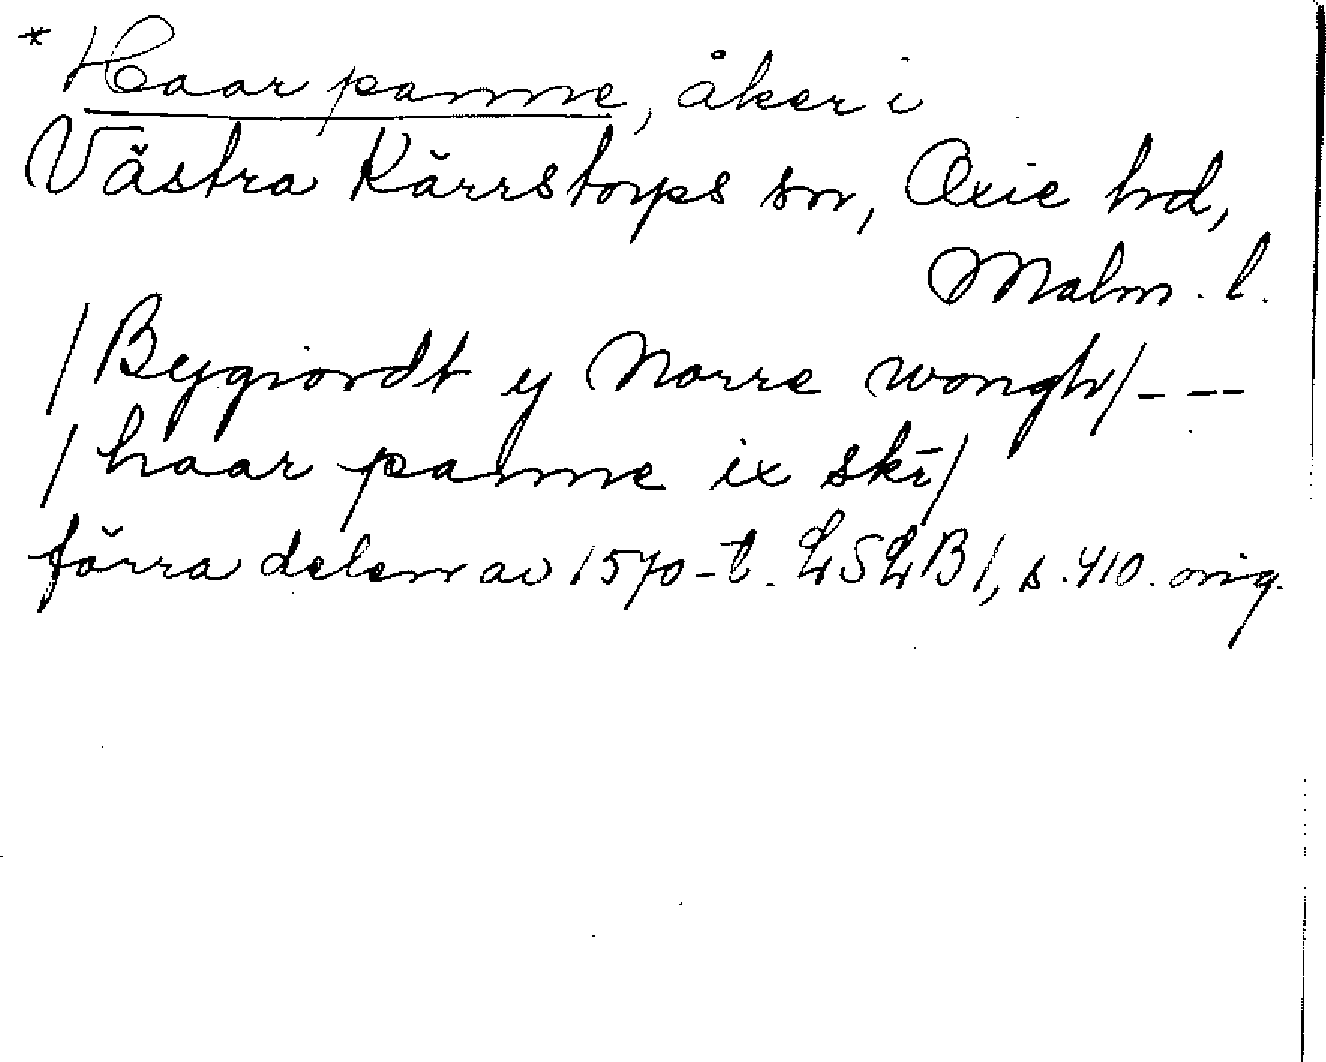 * Haar panne, åker i
Västra Kärrstorps sn, Oxie hd,
Malm. l.
/Bygiordt y Norre wongh/---
/haar panne ix skī/
förra delen av 1570-t. LSLB 1, s. 410. orig.